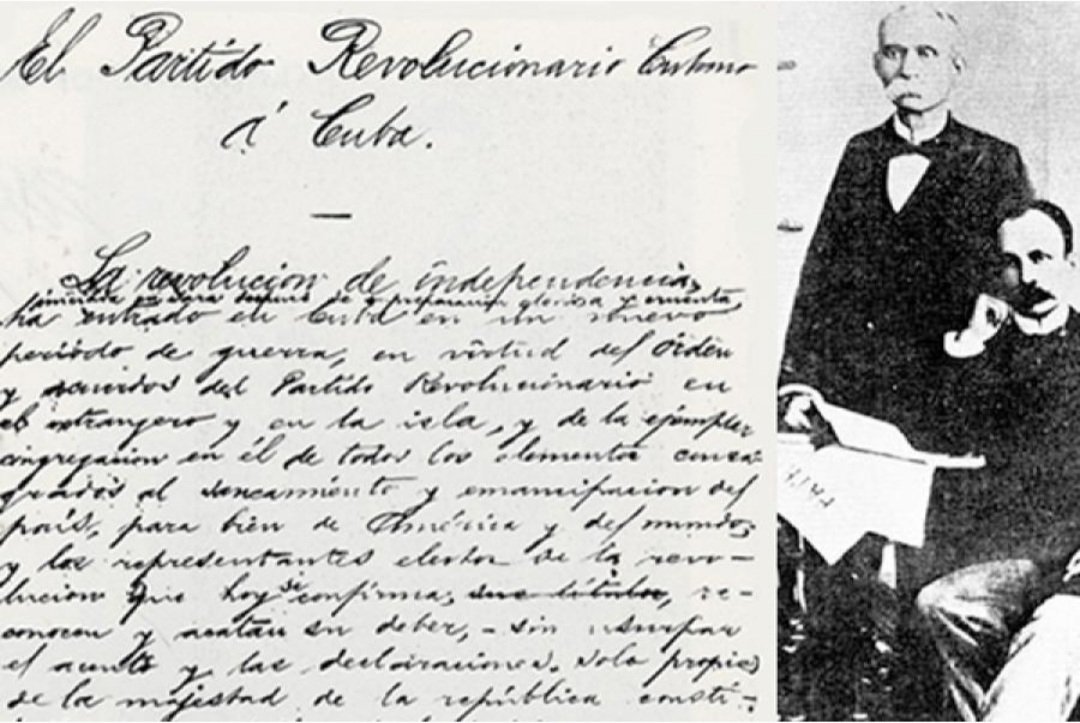 El Partido Revolucionario Cubano
á Cuba.
La revolucion de independencia,
iniciada en Yara despues de preparacion gloriosa y cruenta,
ha entrado en Cuba en un nuevo
período de guerra, en virtud del órden
y acuerdos del Partido Revolucionario en
el extrangero y en la isla, y de la ejemplar
congregacion en él de todos los elementos consa-
grados al saneamiento y emancipacion del
país, para bien de América y del mundo;
y los representantes electos de la revo-
lucion que hoy se confirma, sus títulos, re-
conocen y acatan su deber, - sin usurpar
el acento y las declaraciones, solo propias
de la majestad de la república consti-